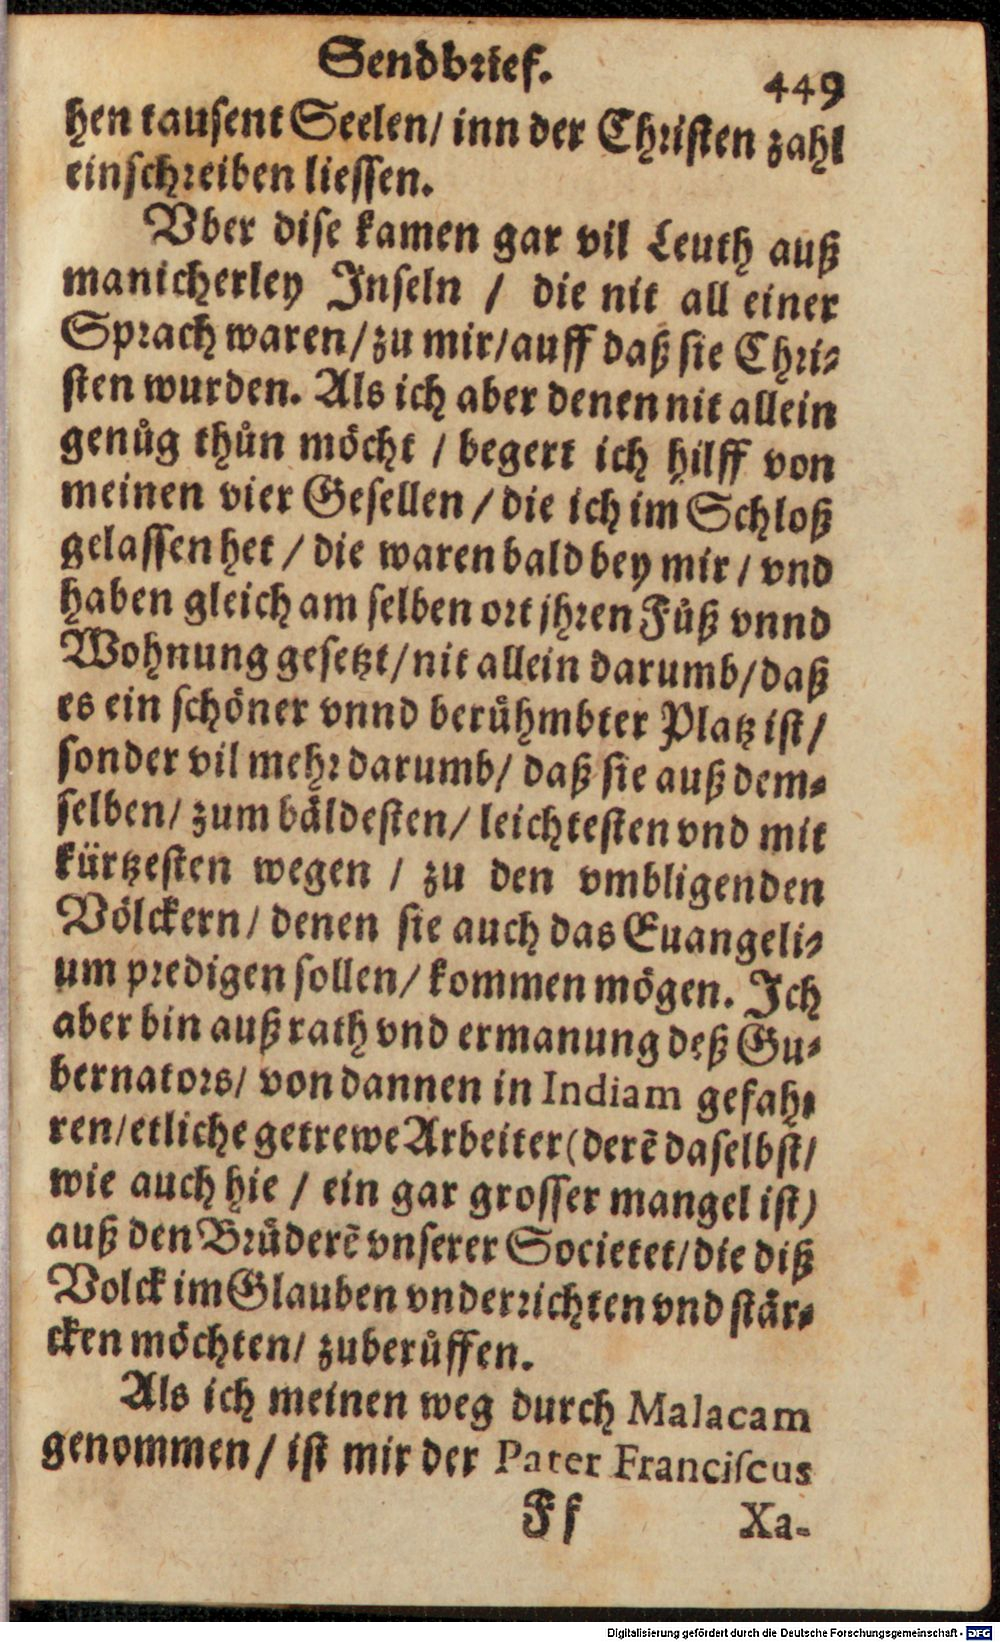 Sendbrief.
449
hen tausent Seelen/ inn der Christen zahl
einschreiben liessen.
Vber dise kamen gar vil Leuth auß
manicherley Inseln / die nit all einer
Sprach waren/ zu mir/ auff daß sie Chri-
sten wurden. Als ich aber denen nit allein
genůg thůn möcht / begert ich hilff von
meinen vier Gesellen / die ich im Schloß
gelassen het / die waren bald bey mir / vnd
haben gleich am selben ort jhren Fůß vnnd
Wohnung gesetzt/ nit allein darumb/ daß
es ein schöner vnnd berůhmbter Platz ist/
sonder vil mehr darumb/ daß sie auß dem-
selben/ zum båldesten/ leichtesten vnd mit
kürtzesten wegen / zu den vmbligenden
Völckern/ denen sie auch das Euangeli-
um predigen sollen/ kommen mögen. Ich
aber bin auß rath vnd ermanung deß Gu-
bernators/ von dannen in Indiam gefah-
ren/ etliche getrewe Arbeiter (derẽ daselbst/
wie auch hie / ein gar grosser mangel ist)
auß den Brůderẽ vnserer Societet/ die diß
Volck im Glauben vnderrichten vnd stär-
cken möchten/ zuberůffen.
Als ich meinen weg durch Malacam
genommen / ist mir der Pater Franciscus
Ff
Xa-
Digitalisierung gefördert durch die Deutsche Forschungsgemeinschaft - DFG